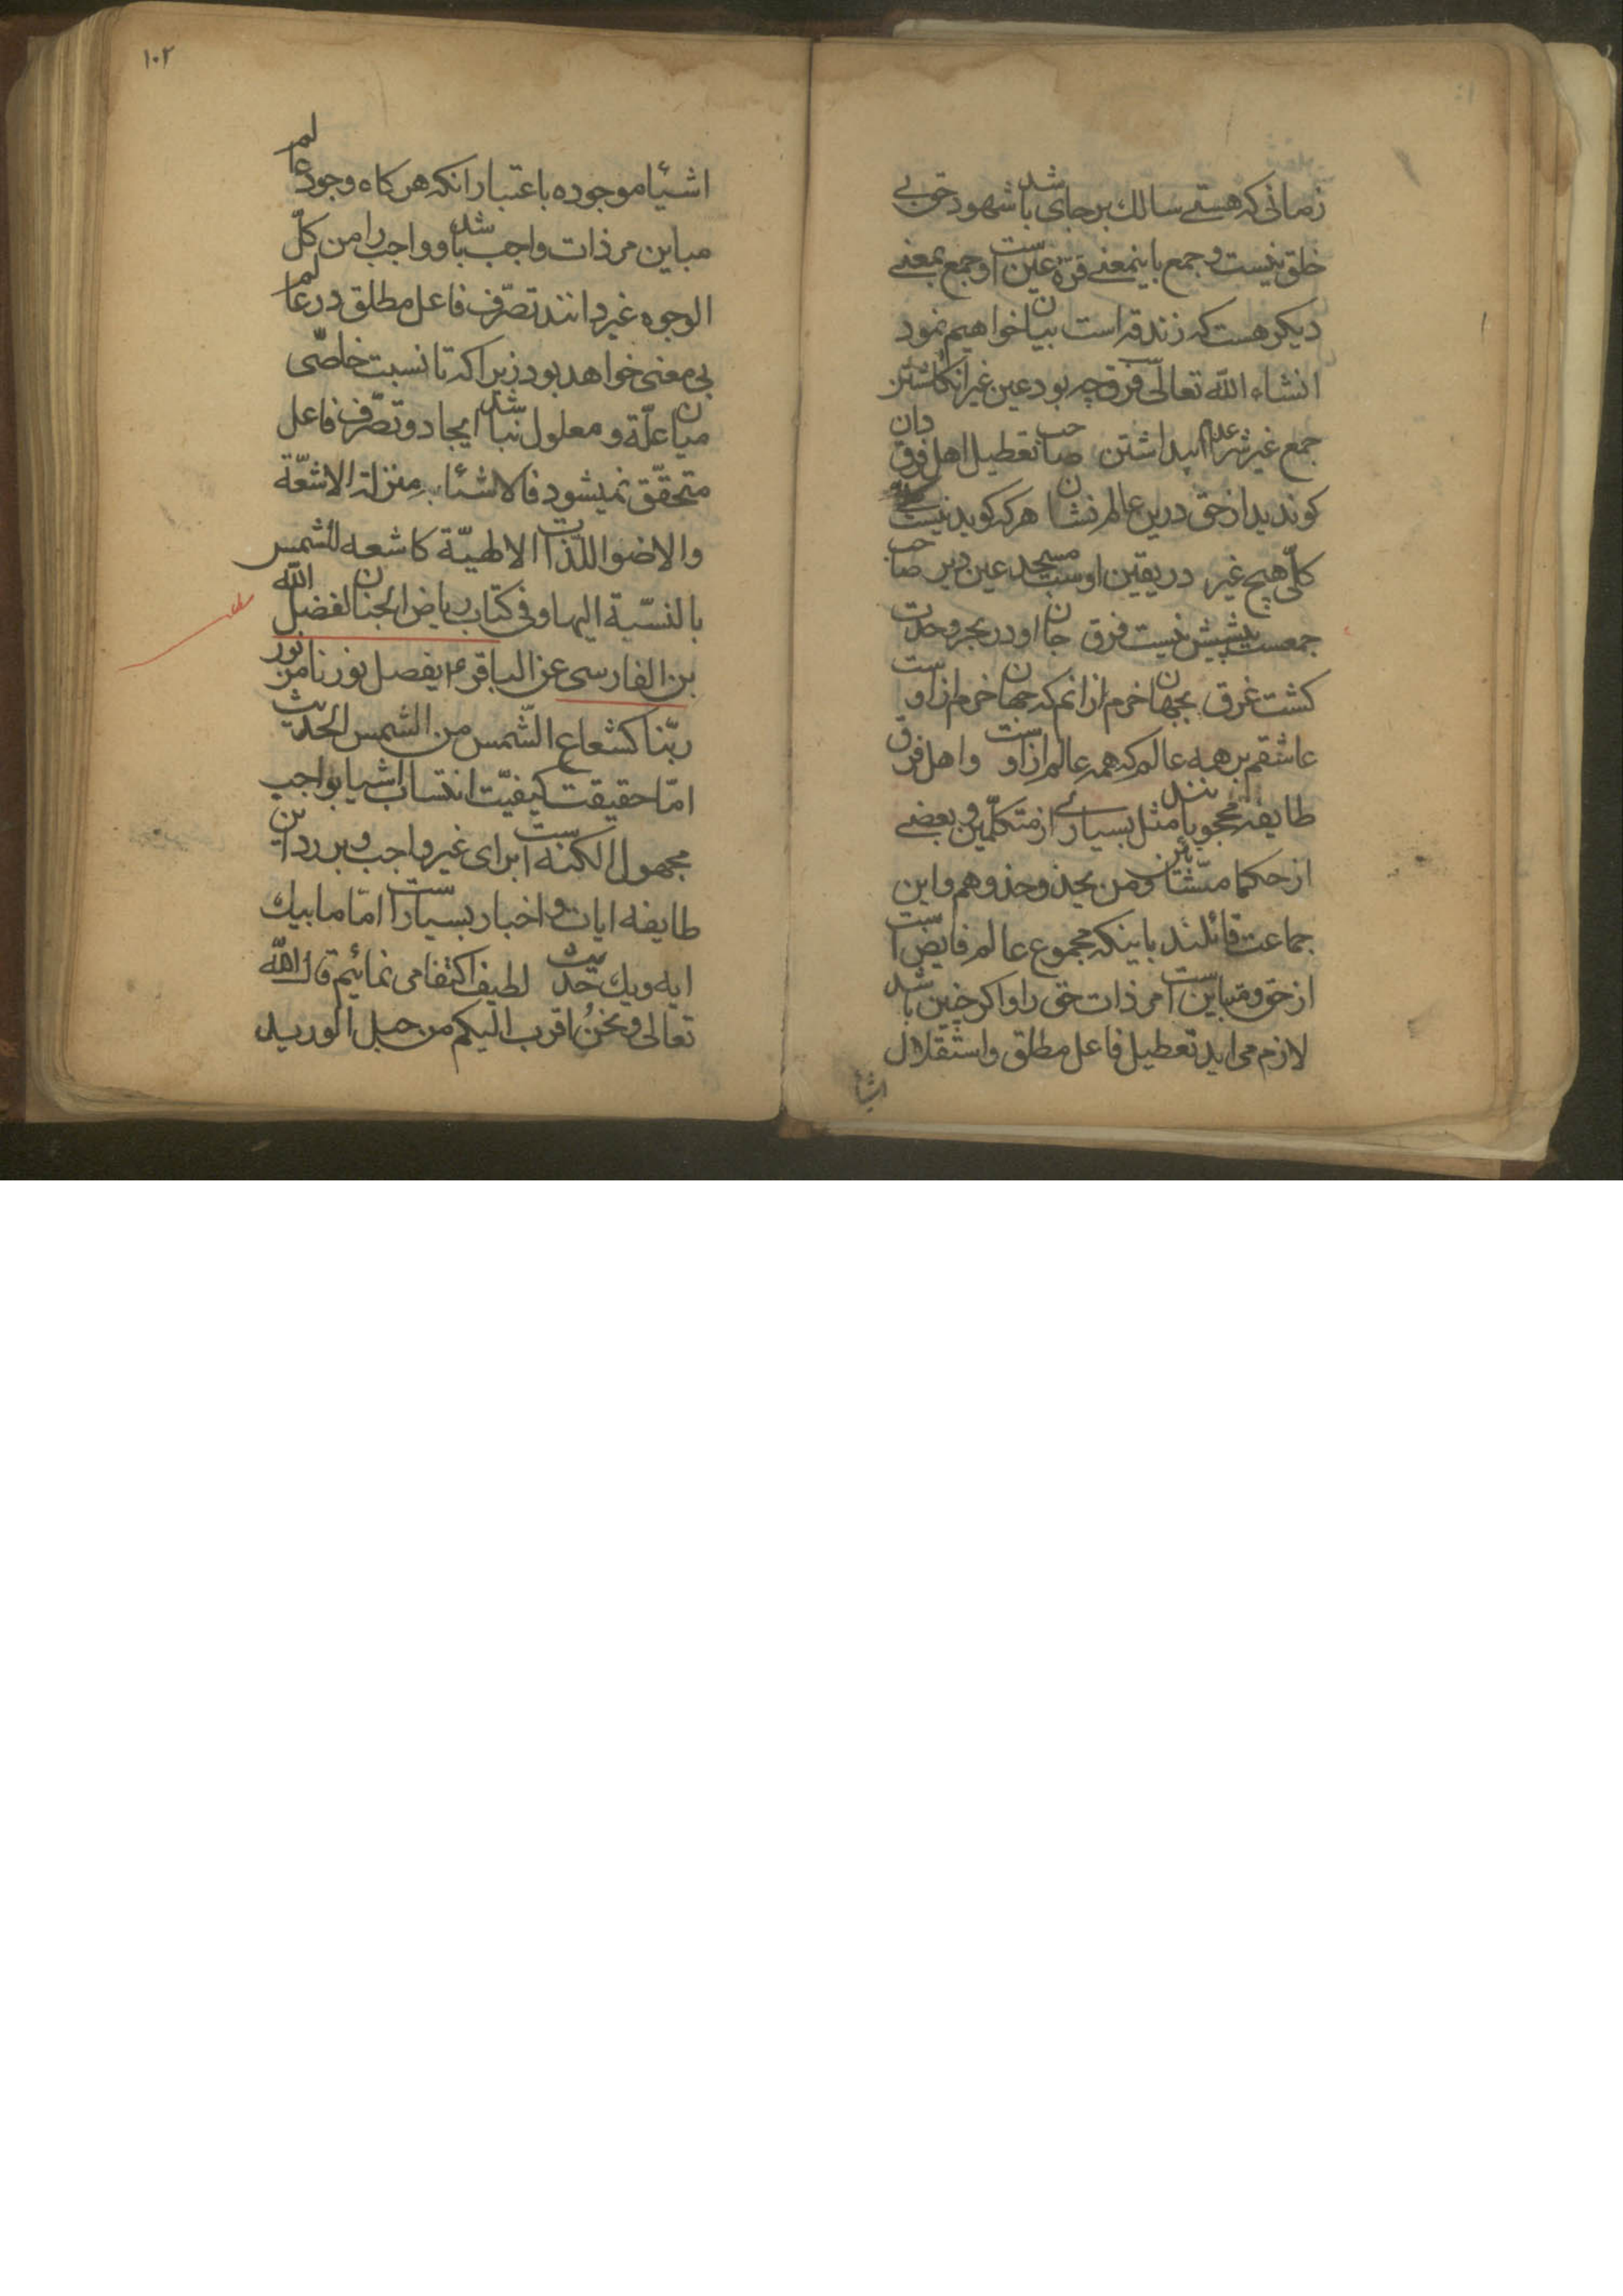 زمانی که هستے سالك برجای باشد شهود حق بے
خلق نیست و جمع باینمعنے قرّهٔ عین است و جمع بمعنے
دیکر هست که زندقه است بیان خواهیم نمود
انشاء الله تعالی فرق چه بود عین غیر انکاشتن
جمع غیرش را عدم پنداشتن صاحب تعطیل اهل فرق دان
کو ندید از حق درین عالم نشان هر که کوید نیست
کلّی هیچ غیر در یقین اوست مسجد عین دیر صاحب
جمعست پیشش نیست فرق جان او در بحر وحدت
کشت غرق بجهان خرم ازانم که جهان خرم ازاوست
عاشقم بر همه عالم که همه عالم ازاوست واهل فرق
طایفه محجوبانند مثل بسیارے از متکلّمین و بعضے
از حکما مشّائین و من یحذو حذوهم واین
جماعت قائلند باینکه مجموع عالم فایض است
از حق و مباین است مر ذات حق را واکر چنین باشد
لازم می اید تعطیل فاعل مطلق و استقلال
اشیا
۱۰۲
اشیٔا موجوده باعتبار انکه هرکاه وجود عالم
مباین مر ذات واجب باشد و واجب را من کلّ
الوجوه غیر دانند تصّرف فاعل مطلق در عالم
بی معنی خواهد بود زیراکه تا نسبت خاصّی
میان علّة و معلول نباشد ایجاد و تصّرف فاعل
متحقّق نمیشود فالاشئاء بمنزلة الاشعّة
والاضوا للذات الالهیّة کاشعه للشمس
بالنسّبة الیها و فی کتاب ریاض الجنان لفضل الله
بن الفارسی عن الباقر ع یفصل نورنا من نور
ربّنا کشعاع الشّمس من الشمس الحدیث
امّا حقیقت کیفیّت انتساب اشیا بواجب
مجهول الکنه است برای غیر واجب و بر رد این
طایفه ایات و اخبار بسیار است امّا ما بیك
ایه ویك حدیث لطیف اکتفا می نمائیم قال الله
تعالی و نحنُ اقرب الیکم من حبل الورید